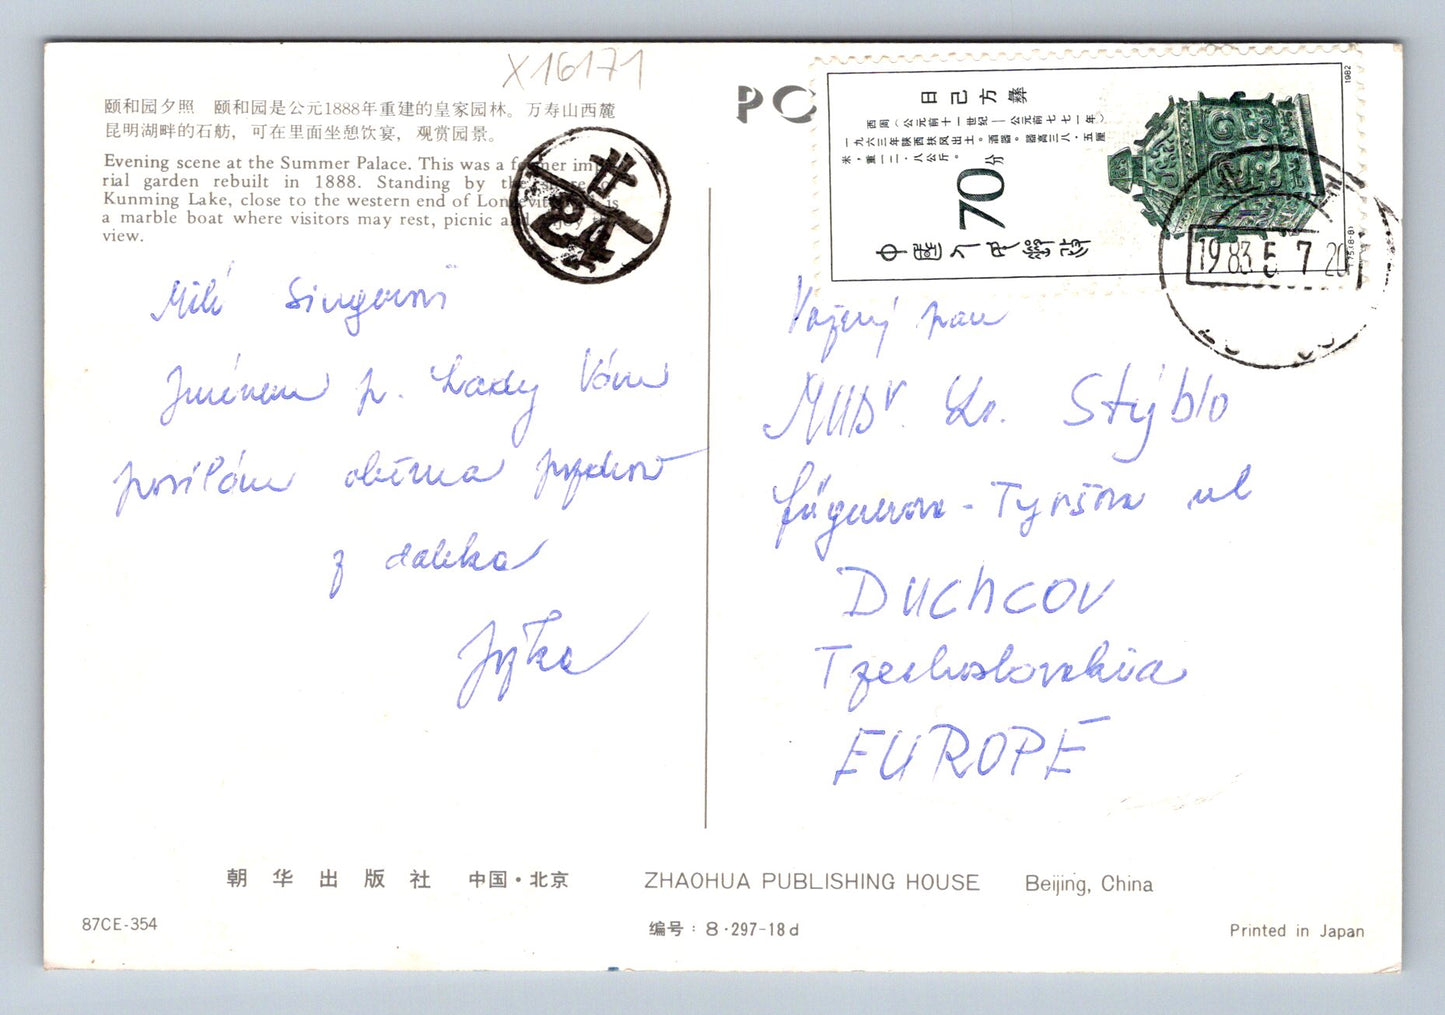 X16171
颐和园夕照 颐和园是公元1888年重建的皇家园林。万寿山西麓
昆明湖畔的石舫，可在里面坐憩饮宴，观赏园景。
Evening scene at the Summer Palace. This was a former impe-
rial garden rebuilt in 1888. Standing by the
Kunming Lake, close to the western end of Longevity is
a marble boat where visitors may rest, picnic and enjoy the
view.
Milí
Jménem p. Lady Vám
posílám
z daleka
Jitka
PO
日己方彝
西周（公元前十一世纪—公元前七七一年）
一九六三年陕西扶风出土。酒器。器高三八·五厘
米，重一二·八公斤。
70分
中国人民邮政
1982
T75(8-8)
1983 5 7 20
Vážený pan
MUDr. Stýblo
Tyršova ul
DUCHCOV
Tzechoslovakia
EUROPE
朝华出版社 中国·北京 ZHAOHUA PUBLISHING HOUSE Beijing, China
87CE-354 编号：8·297-18d Printed in Japan